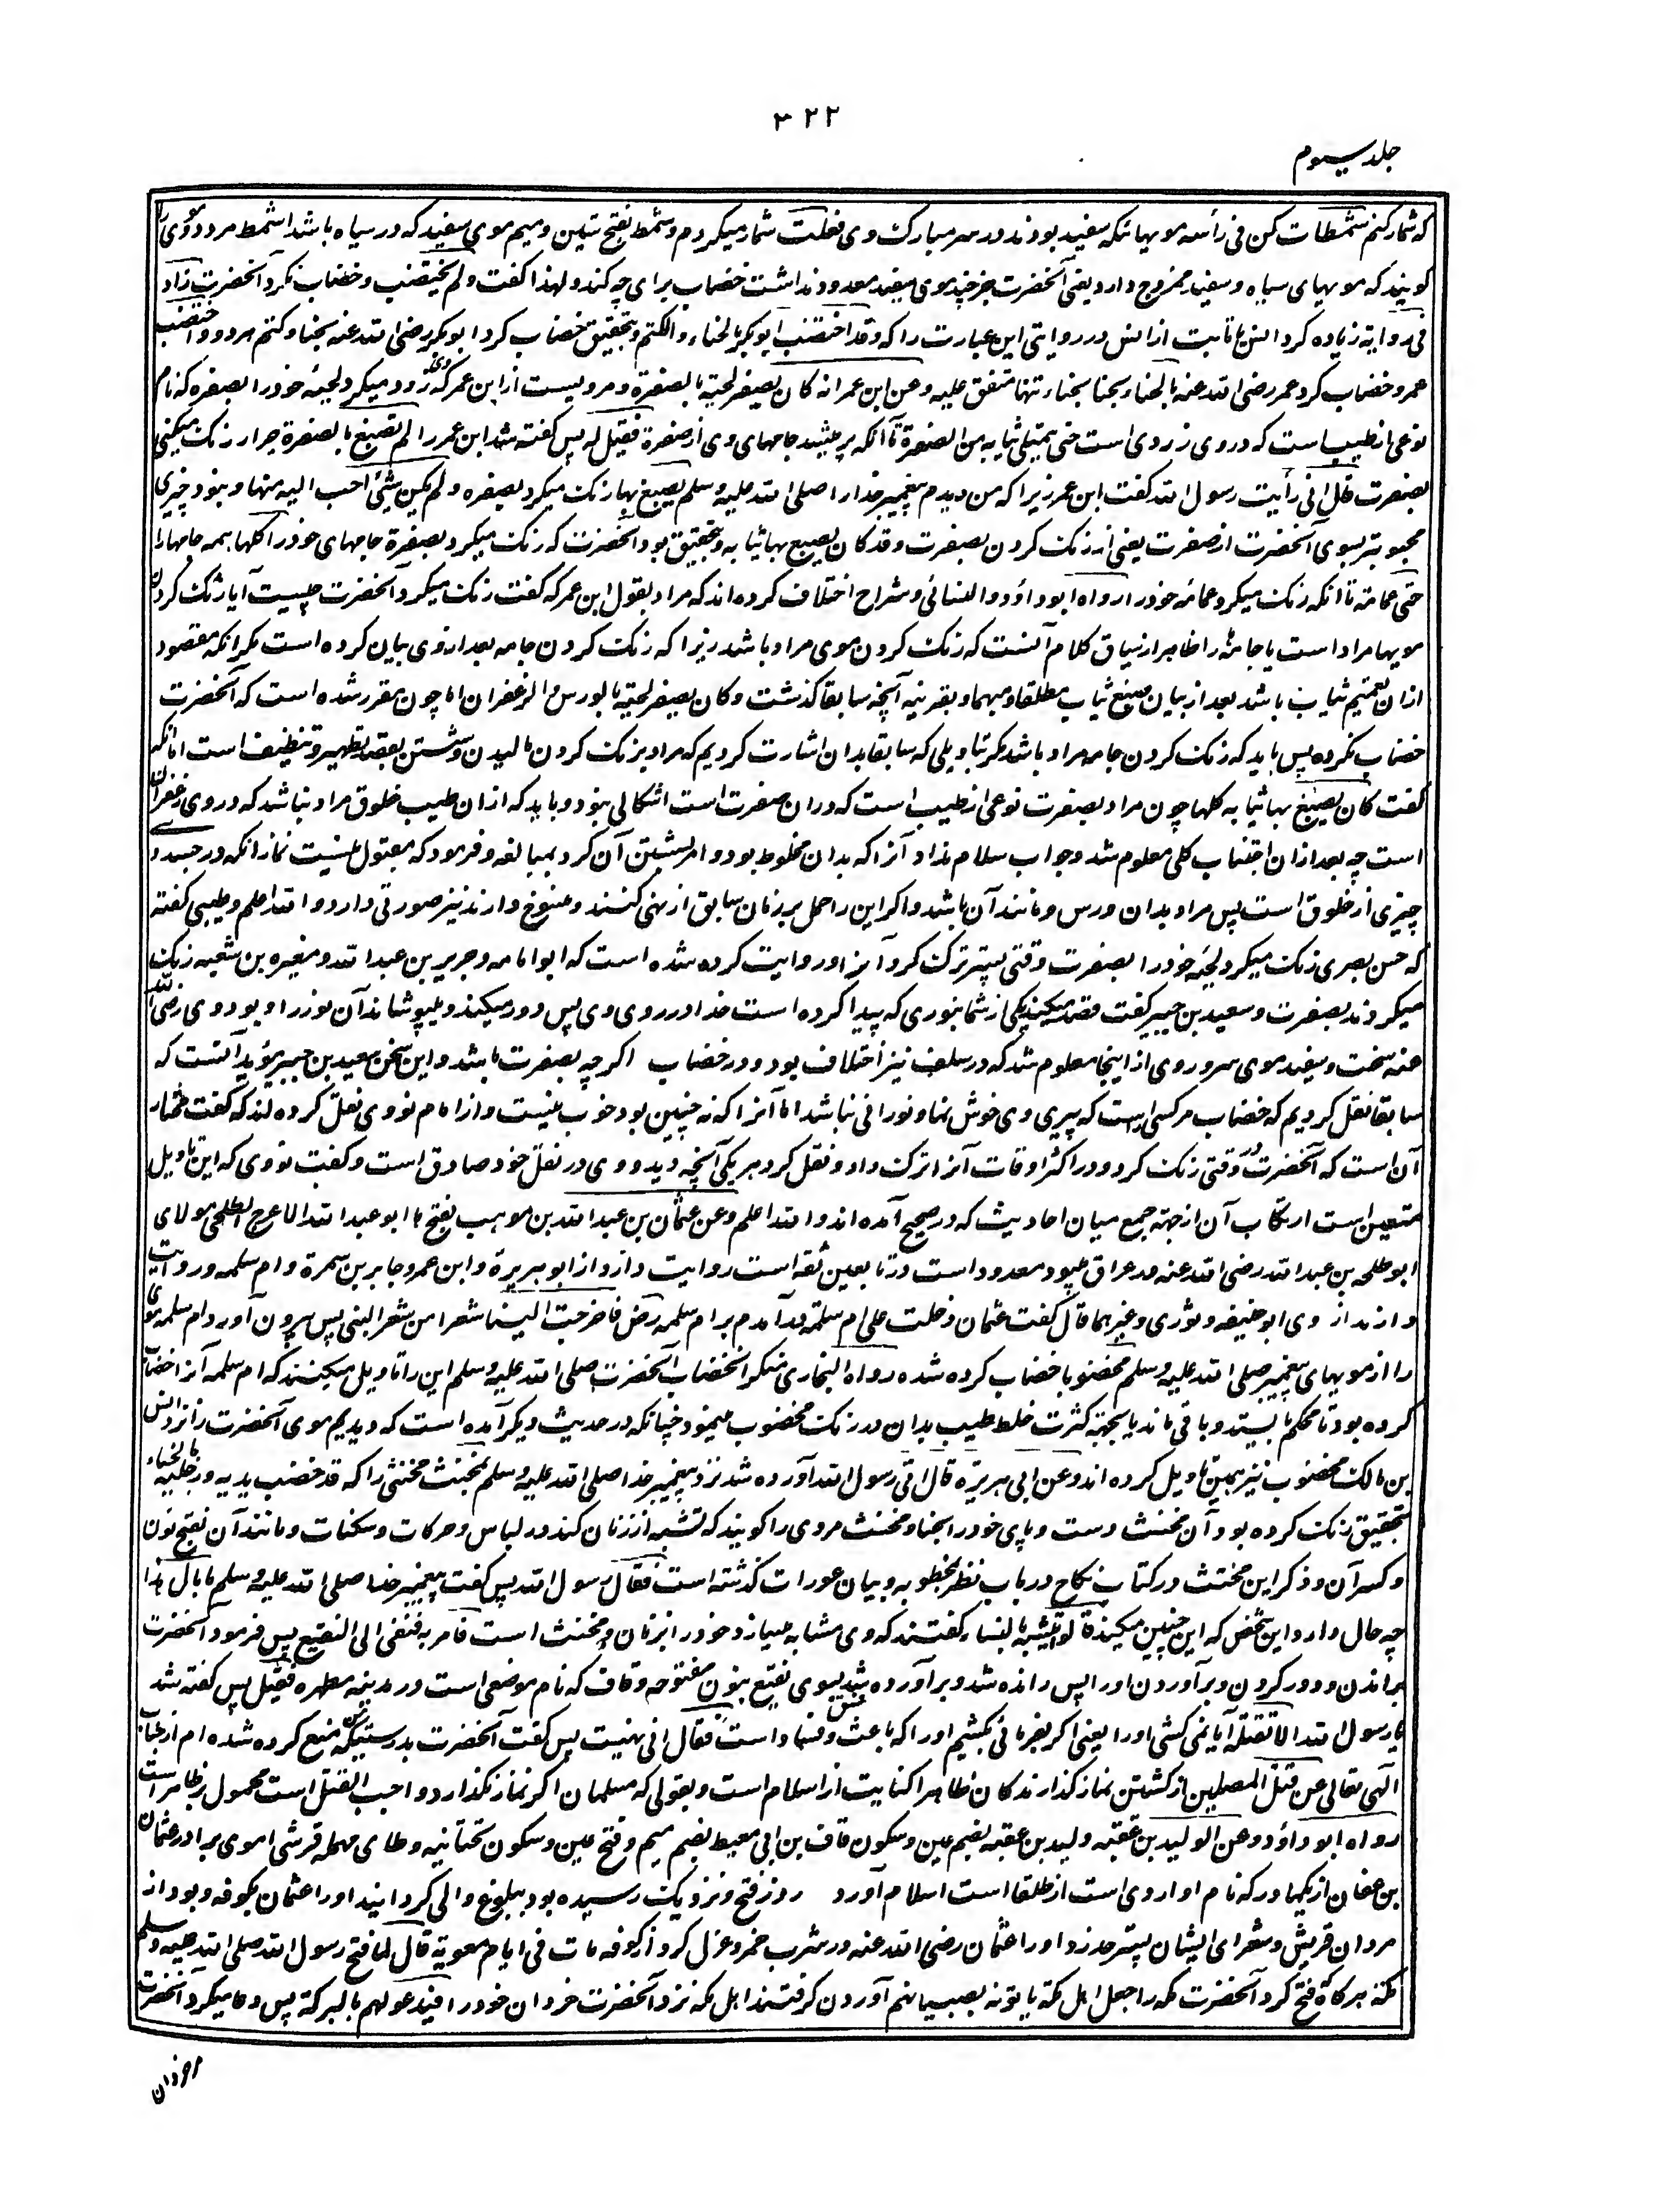 ۳۲۲
جلد سیوم
که شمار کنم شمطات کن فی رأسه مویهائیکه سفید بودند در سر مبارک وی فعلت شمار میکردم و شمط بفتح شین و میم موی سفید که در سیاه باشد اشمط مرد دو موی را
کویند که مویهای سیاه و سفید ممزوج دارد یعنی آنحضرت جز چند موی سفید معدود نداشت خضاب برای چه کند و لهذا کفت و لم یختضب و خضاب نکرد آنحضرت زاد
فی روایة زیاده کرد انس یا ثابت از انس در روایتی این عبارت را که و قد اختضب ابوبکر بالحناء و الکتم و بتحقیق خضاب کرد ابوبکر رضی الله عنه بحنا و کتم هر دو و اختضب
عمر و خضاب کرد عمر رضی الله عنه بالحناء بحنا بحناء تنها متفق علیه و عن ابن عمر انه کان یصفر لحیته بالصفرة و مرویست از ابن عمر که وی زرد میکرد لحیهٔ خود را بصفره که نام
نوعی از طیب است که در وی زردی است حتی یمتلی ثیابه من الصفرة تا آنکه پر میشد جامهای وی از صفرة فقیل له پس کفته شد ابن عمر را لم تصبغ بالصفرة چرا رنک میکنی
بصفرت قال انی رأیت رسول الله کفت ابن عمر زیرا که من دیدم پیغمبر خدا را صلی الله علیه و سلم یصبغ بها رنک میکرد بصفره و لم یکن شیئ احب الیه منها و نبود چیزی
محبوبتر بسوی آنحضرت از صفرت یعنی از رنک کردن بصفرت و قد کان یصبغ بها ثیابه و بتحقیق بود آنحضرت که رنک میکرد بصفرة جامهای خود را کلها همه جامها را
حتی عمامته تا آنکه رنک میکرد عمامهٔ خود را رواه ابوداؤد و النسائی و شراح اختلاف کرده‌اند که مراد بقول ابن عمر که کفت رنک میکرد آنحضرت چیست آیا رنک کردن
مویها مراد است یا جامها را ظاهر از سیاق کلام آنست که رنک کردن موی مراد باشد زیرا که رنک کردن جامه بعد از وی بیان کرده است مکر آنکه مقصود
ازان تعمیم ثیاب باشد بعد از بیان صبغ ثیاب مطلقا و مبهما و بقرینه آنچه سابقا کذشت و کان یصفر لحیته بالورس و الزعفران اما چون مقرر شده است که آنحضرت
خضاب نکرده پس باید که رنک کردن جامه مراد باشد مکر بتاویلی که سابقا بدان اشارت کردیم که مراد برنک کردن مالیدن و شستن بقصد تطهیر و تنظیف است اما آنکه
کفت کان یصبغ بها ثیابه کلها چون مراد بصفرت نوعی از طیب است که دران صفرت است اشکالی نبود و باید که ازان طیب خلوق مراد نباشد که در وی زعفران
است چه بعد ازان اجتناب کلی معلوم شد و جواب سلام نداد آنرا که بدان مخلوط بود و امر بشستن آن کرد بمبالغه و فرمود که مقبول نیست نماز آنکه در جسد و
چیزی از خلوق است پس مراد بدان ورس و مانند آن باشد و اکر این را حمل بر زمان سابق از نهی کنند و منسوخ دارند نیز صورتی دارد و الله اعلم و طیبی کفته
که حسن بصری رنک میکرد لحیهٔ خود را بصفرت وقتی پستر ترک کرد آنرا و روایت کرده شده است که ابو امامه و جریر بن عبدالله و مغیره بن شعبه رنک
میکردند بصفرت و سعید بن جبیر کفت قصد میکند یکی از شما بنوری که پیدا کرده است خدا در روی وی پس دور میکند و میپوشاند آن نور را و بود وی رضی الله
عنه سخت سفید موی سر و روی از اینجا معلوم شد که در سلف نیز اختلاف بود و در خضاب اکرچه بصفرت باشد و این سخن سعید بن جبیر مؤید آنست که
سابقا نقل کردیم که خضاب مر کسی راست که پیری وی خوش نما و نورانی نباشد اما آنرا که نه چنین بود خوب نیست و از امام نووی نقل کرده‌اند که کفت مختار
آن است که آنحضرت در وقتی رنک کرد و در اکثر اوقات آنرا ترک داد و نقل کرد هر یکی آنچه دید و وی در نقل خود صادق است و کفت نووی که این تاویل
متعین است ارتکاب آن از جهة جمع میان احادیث که در صحیح آمده‌اند و الله اعلم و عن عثمان بن عبدالله بن موهب بفتح ها ابو عبدالله الاعرج الطلحی مولای
ابو طلحه بن عبدالله رضی الله عنه در عراق میبود معدود است در تابعین ثقه است روایت دارد از ابوهریرة و ابن عمر و جابر بن سمرة و ام سلمه و روایت
دارند از وی ابو حنیفه و ثوری و غیرهما قال کفت عثمان دخلت علی ام سلمة در آمدم بر ام سلمه رض فاخرجت الینا شعرا من شعر النبی پس بیرون آورد ام سلمه موی
را از مویهای پیغمبر صلی الله علیه و سلم مخضوبا خضاب کرده شده رواه البخاری منکر انخضاب آنحضرت صلی الله علیه و سلم این را تاویل میکنند که ام سلمه آنرا خضاب
کرده بود تا محکم بایستد و باقی ماند یا بجهة کثرت خلط طیب بدان در رنک مخضوب مینمود چنانکه در حدیث دیکر آمده است که دیدیم موی آنحضرت را نزد انس
بن مالک مخضوب نیز بهمین تاویل کرده‌اند و عن ابی هریرة قال اتی رسول الله آورده شد نزد پیغمبر خدا صلی الله علیه و سلم بمخنث مخنثی را که قد خضب یدیه و رجلیه بالحناء
بتحقیق رنک کرده بود آن مخنث دست و پای خود را بحنا و مخنث مردی را کویند که تشبه از زنان کند در لباس و حرکات و سکنات و مانند آن بفتح نون
و کسر آن و ذکر این مخنث در کتاب نکاح در باب نظر بمخطوبه و بیان عورات کذشته است فقال رسول الله پس کفت پیغمبر خدا صلی الله علیه و سلم ما بال هذا
چه حال دارد این شخص که این چنین میکند قالوا یتشبه بالنساء کفتند که وی مشابه میسازد خود را بزنان و مخنث است فامر به فنفی الی النقیع پس فرمود آنحضرت
براندن و دور کردن و بر آوردن او را پس رانده شد و بر آورده شد بسوی نقیع بنون مفتوحه و قاف که نام موضعی است در مدینه مطهره فقیل پس کفته شد
یا رسول الله الا تقتله آیا نمی کشی او را یعنی اکر بفرمائی بکشیم او را که باعث فسق و فساد است فقال انی نهیت پس کفت آنحضرت بدرستیکه من منع کرده شده ام از جناب
الهی تعالی عن قتل المصلین از کشتن نماز کذارندکان ظاهرا کنایت از اسلام است و بقولی که مسلمان اکر نماز نکذارد واجب القتل است محمول بر ظاهر است
رواه ابوداؤد و عن الولید بن عقبه ولید بن عقبه بضم عین و سکون قاف بن ابی معیط بضم میم و فتح عین و سکون تحتانیه و طای مهمله قرشی اموی برادر عثمان
بن عفان از یکمادر که نام او اروی است از طلقا است اسلام آورد روز فتح و نزدیک رسیده بود ببلوغ والی کردانید او را عثمان بکوفه و بود از
مردان قریش و شعرای ایشان پستر حد زد او را عثمان رضی الله عنه در شرب خمر و عزل کرد از کوفه مات فی ایام معویة قال لما فتح رسول الله صلی الله علیه و سلم
مکة هر کاه فتح کرد آنحضرت مکه را جعل اهل مکة یاتونه بصبیانهم آوردن کرفتند اهل مکه نزد آنحضرت خردان خود را فیدعو لهم بالبرکة پس دعا میکرد آنحضرت